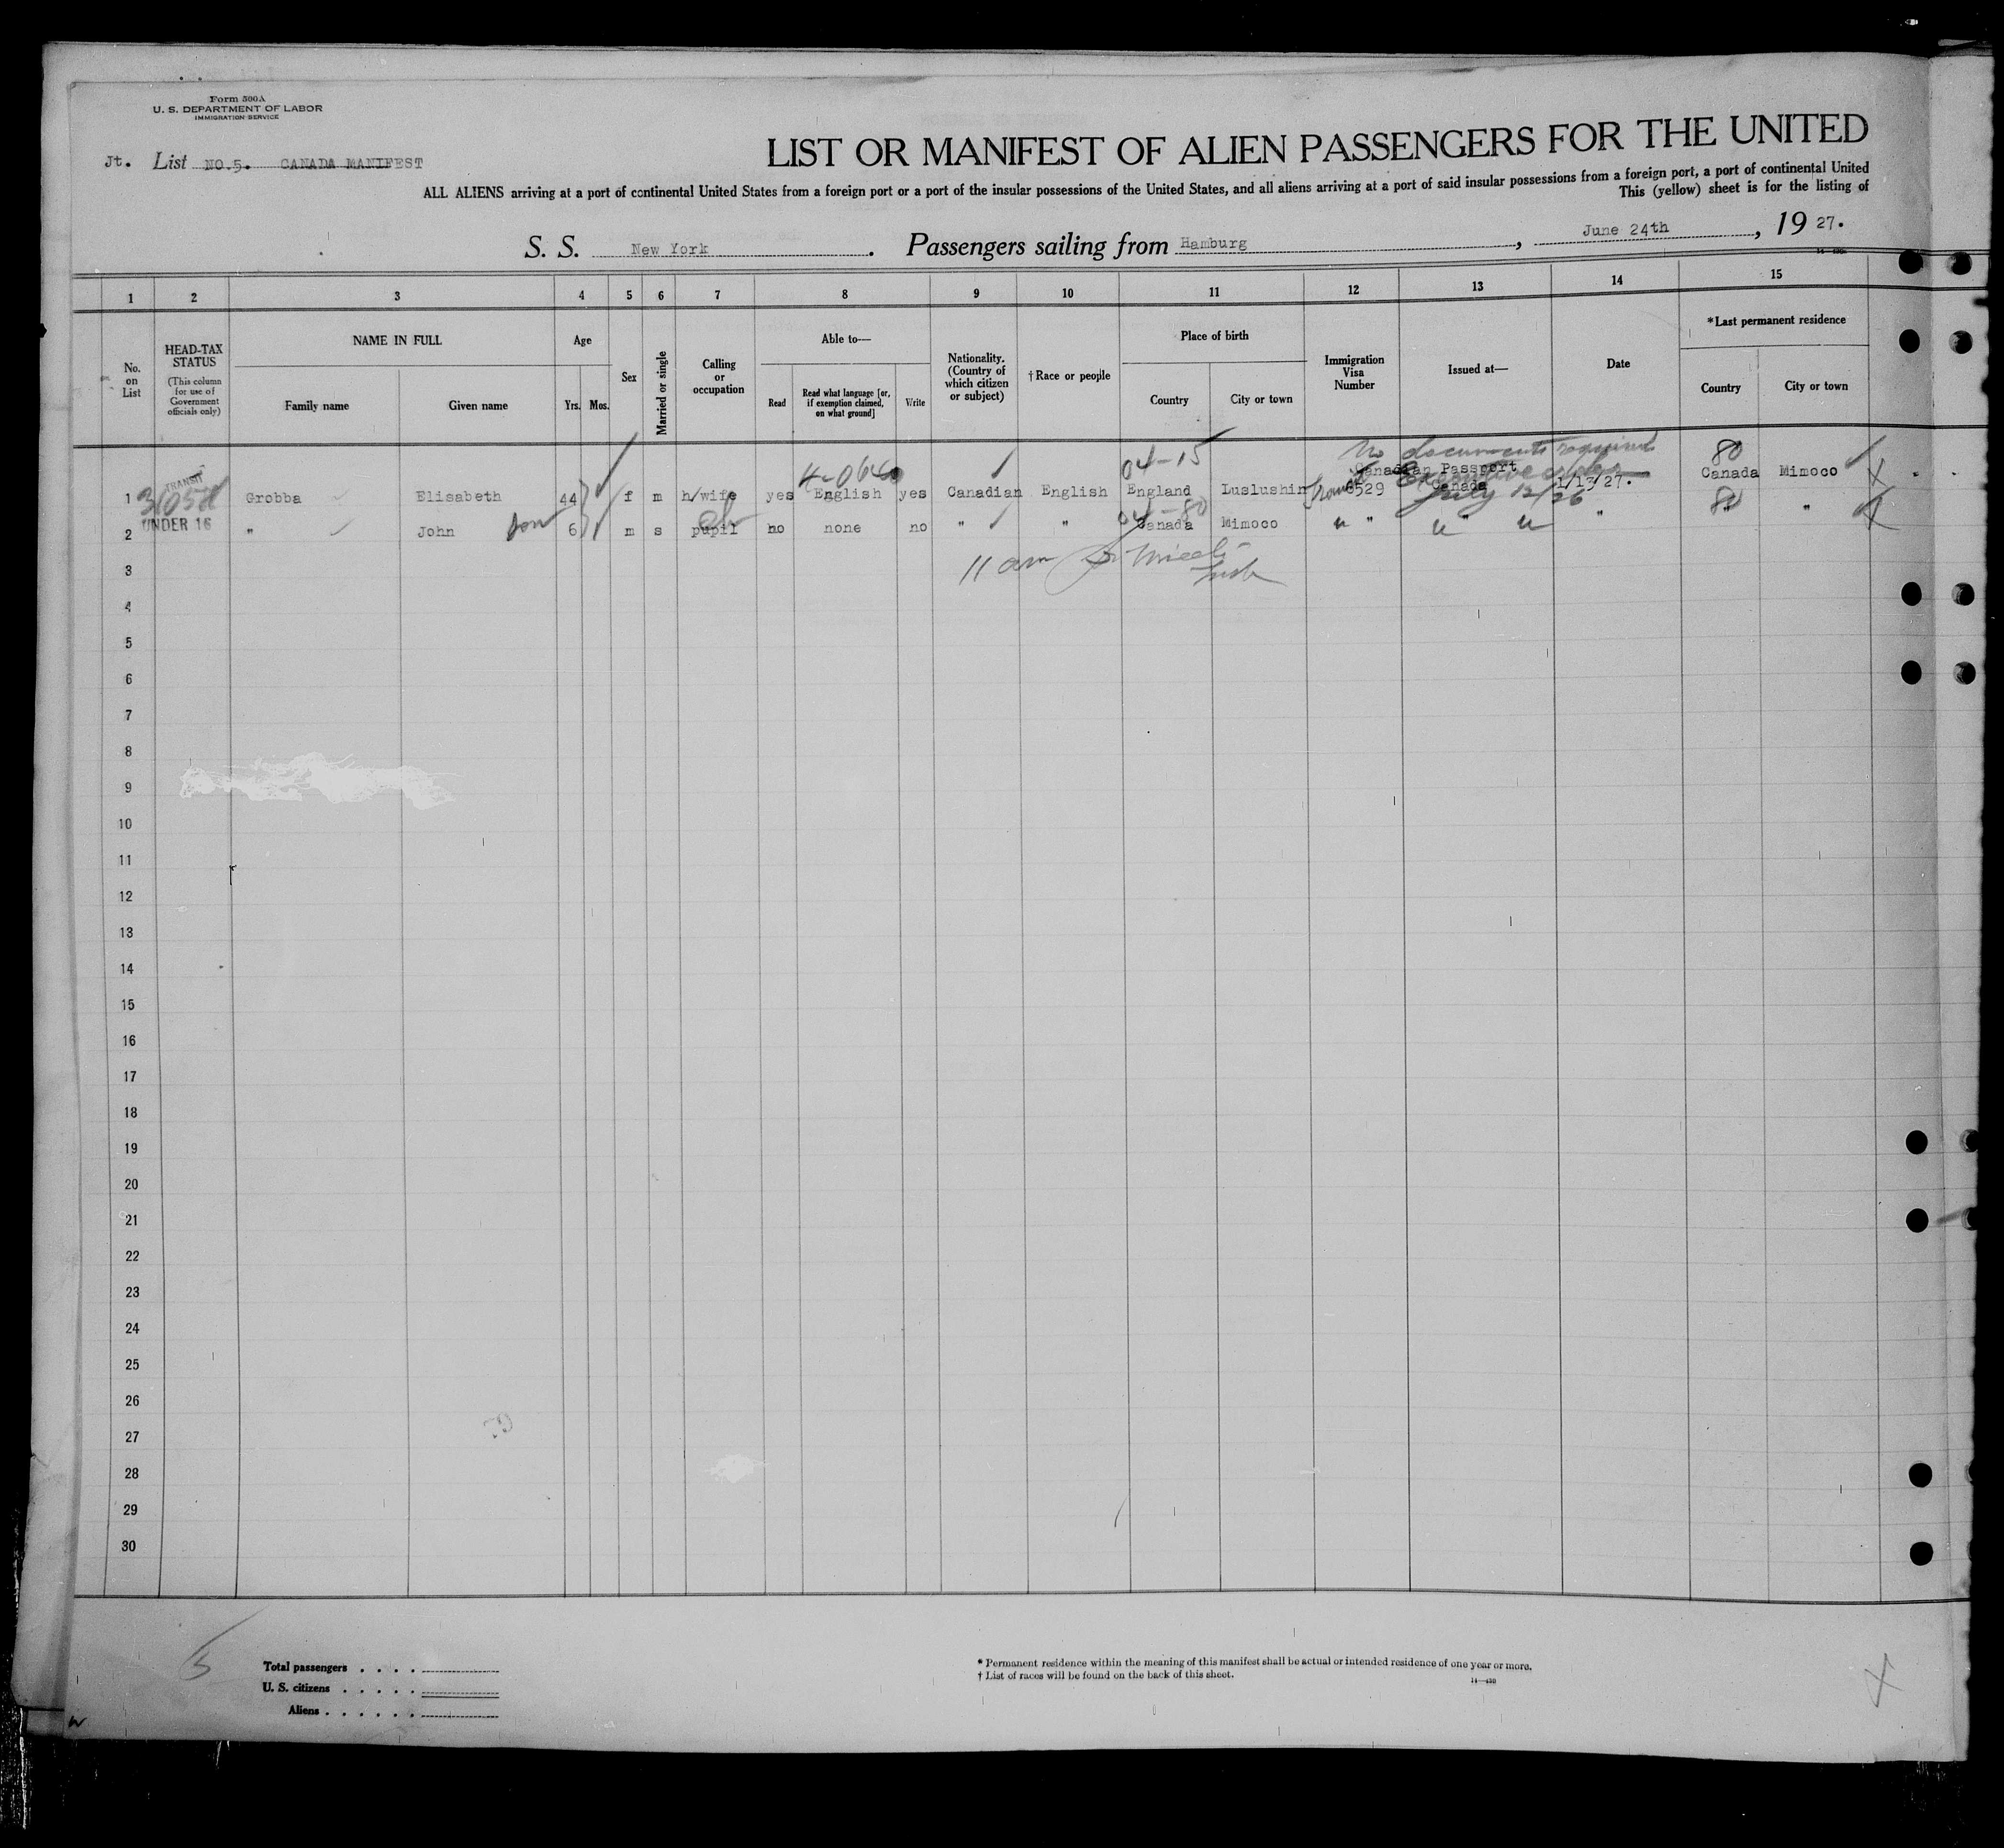 Form 500A
U. S. DEPARTMENT OF LABOR
IMMIGRATION SERVICE
Jt. List NO.5. CANADA MANIFEST
LIST OR MANIFEST OF ALIEN PASSENGERS FOR THE UNITED
ALL ALIENS arriving at a port of continental United States from a foreign port or a port of the insular possessions of the United States, and all aliens arriving at a port of said insular possessions from a foreign port, a port of continental United
This (yellow) sheet is for the listing of
S. S. New York. Passengers sailing from Hamburg, June 24th, 1927.
1 2 3 4 5 6 7 8 9 10 11 12 13 14 15
No. on List
HEAD-TAX STATUS
(This column for use of Government officials only)
NAME IN FULL
Family name Given name
Age
Yrs. Mos.
Sex
Married or single
Calling or occupation
Able to—
Read
Read what language [or, if exemption claimed, on what ground]
Write
Nationality. (Country of which citizen or subject)
†Race or people
Place of birth
Country City or town
Immigration Visa Number
Issued at—
Date
*Last permanent residence
Country City or town
04-15 No documents required 80
TRANSIT Canadian Passport
1 Grobba Elisabeth 44 f m h/wife yes English yes Canadian English England Luslushin 6529 Canada 1/13/27. Canada Mimoco
July 12/26
UNDER 16 04-80 80
2 " John son 6 m s pupil no none no " " Canada Mimoco " " " " " "
3 11 am
4
5
6
7
8
9
10
11
12
13
14
15
16
17
18
19
20
21
22
23
24
25
26
27
28
29
30
5
Total passengers . . . .
U. S. citizens . . . . .
Aliens . . . . . .
* Permanent residence within the meaning of this manifest shall be actual or intended residence of one year or more.
† List of races will be found on the back of this sheet.
14—430